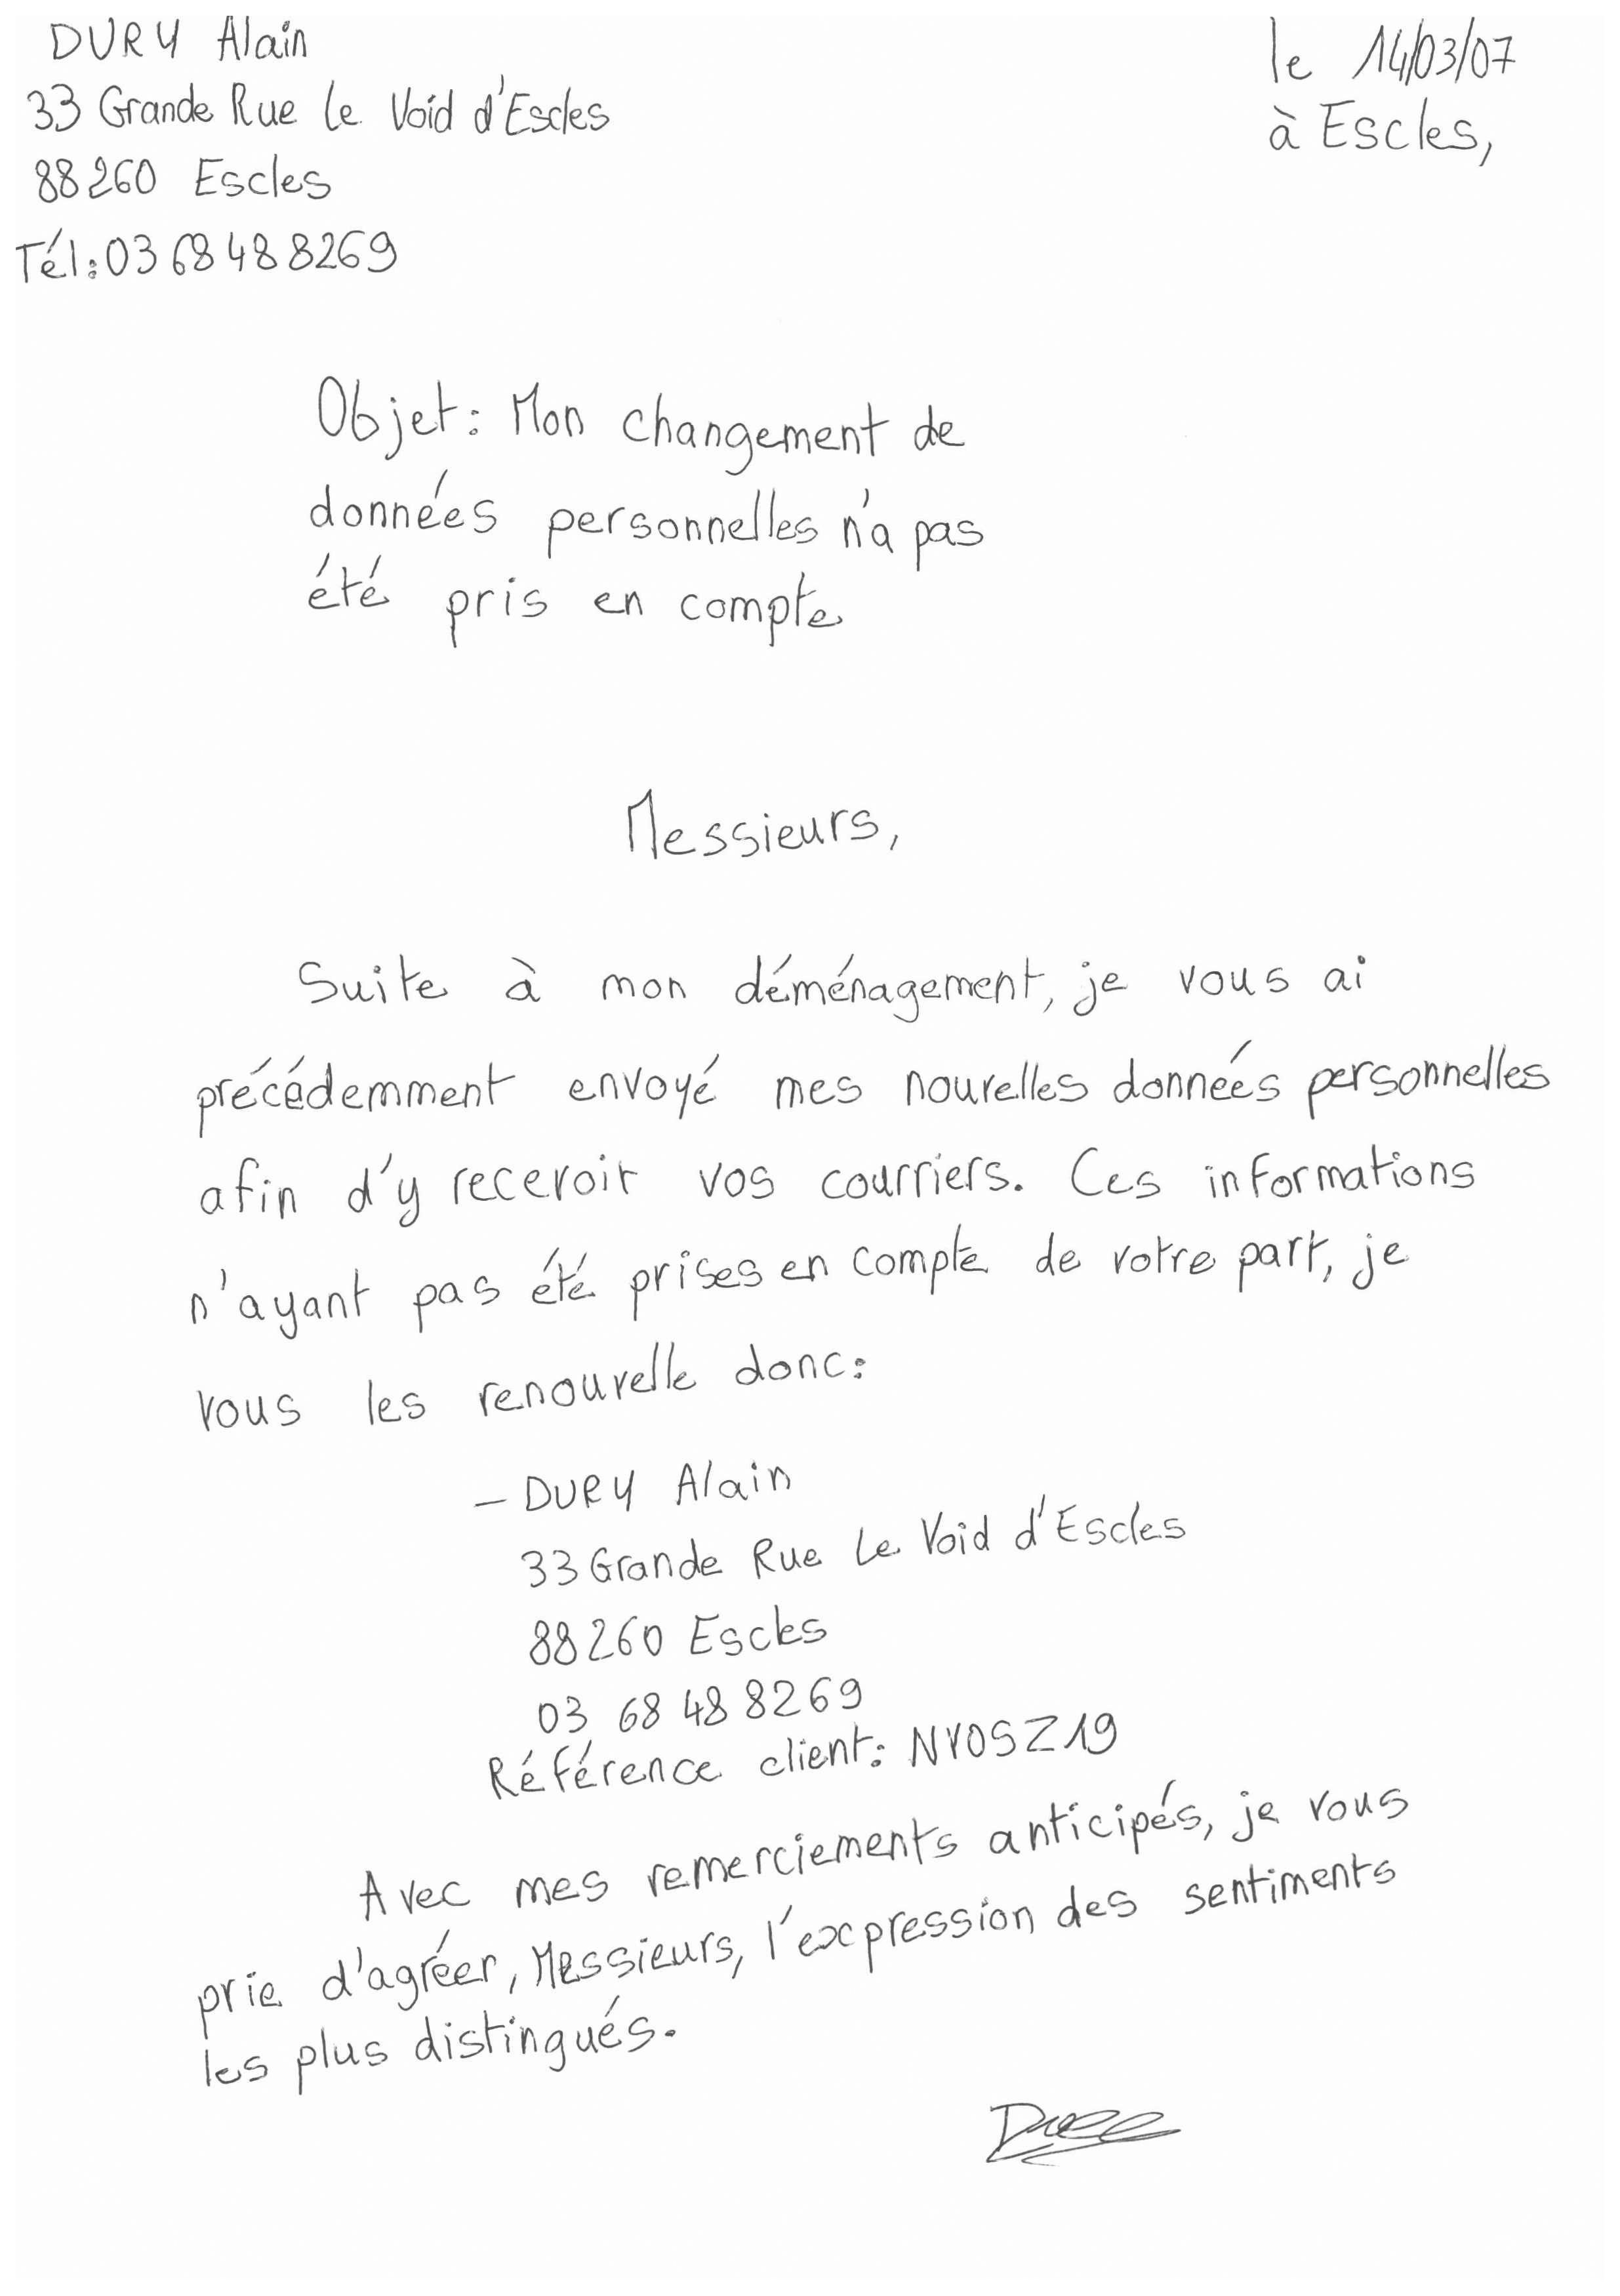 DURY Alain
33 Grande Rue Le Void d'Escles
88260 Escles
Tél: 03 68 48 8269
le 14/03/07
à Escles,
Objet: Mon changement de
données personnelles n'a pas
été pris en compte
Messieurs,
Suite à mon déménagement, je vous ai
précédemment envoyé mes nouvelles données personnelles
afin d'y recevoir vos courriers. Ces informations
n'ayant pas été prises en compte de votre part, je
vous les renouvelle donc:
- DURY Alain
33 Grande Rue Le Void d'Escles
88260 Escles
03 68 48 8269
Référence client: NVOSZ19
Avec mes remerciements anticipés, je vous
prie d'agréer, Messieurs, l'excpression des sentiments
les plus distingués.